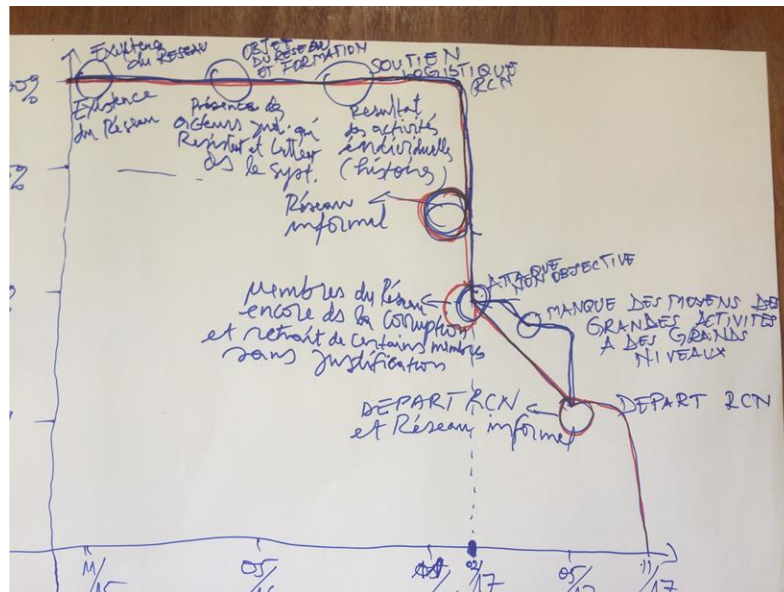 Existence
du RESEAU
OBJET
DU RESEAU
ET FORMATION
SOUTIEN
LOGISTIQUE
RCN
00%
Existence
du Réseau
Présence des
acteurs jud. qui
Resistent et lutter
ds le syst.
Resultat
des activités
individuelles
(histoire)
%
Réseau
informel
ATTAQUE
NON OBJECTIVE
Membres du Réseau
encore ds la corruption
et retrait de certains membres
sans justification
MANQUE DES MOYENS DE
GRANDES ACTIVITES
A DES GRANDS
NIVEAUX
DEPART RCN
et Réseau informel
DEPART RCN
11/15
05/16
02/17
05/17
11/17